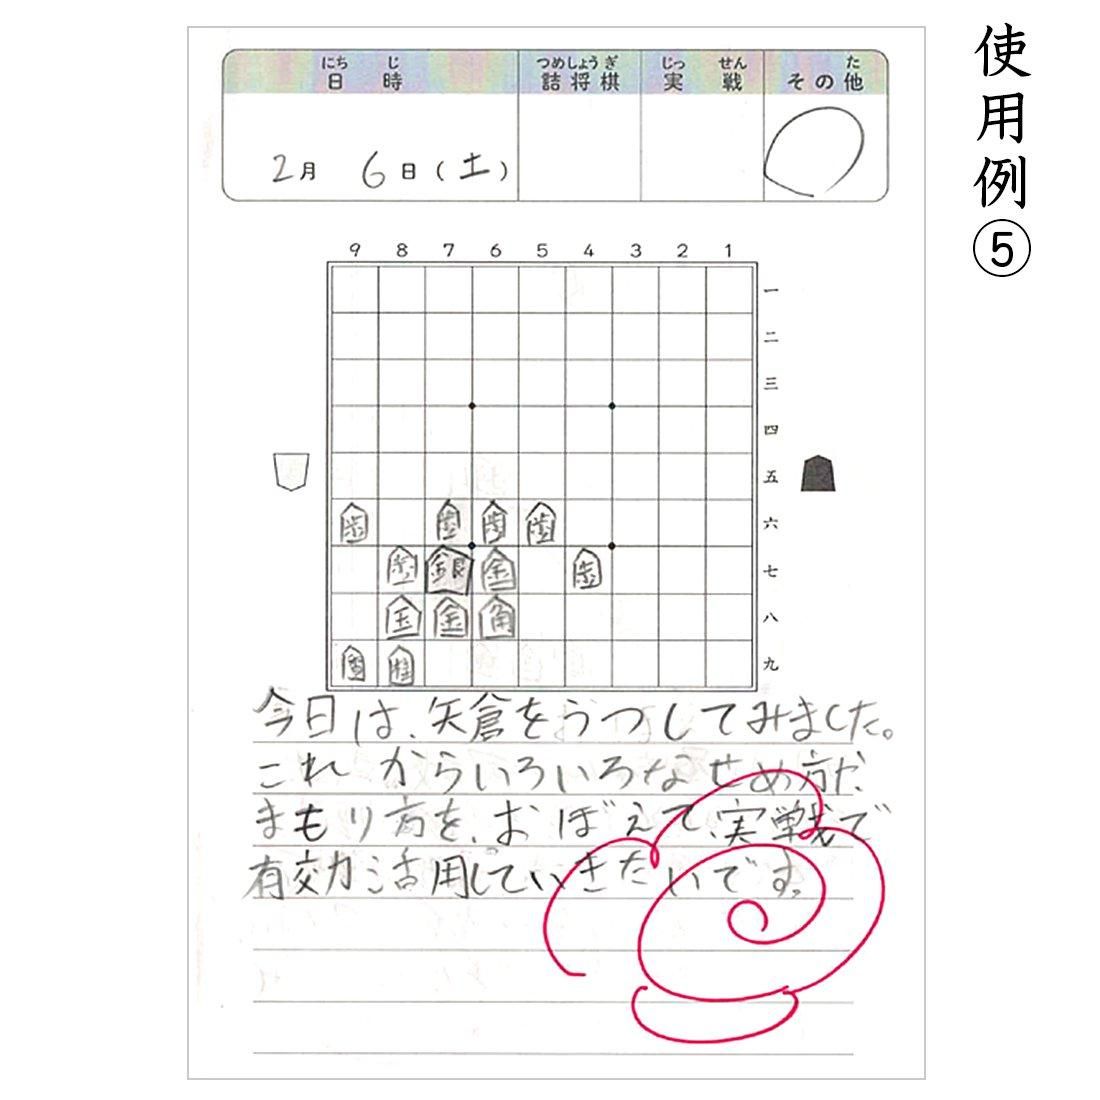 使用例⑤
にち じ つめしょうぎ じっ せん た
日 時 詰将棋 実 戦 その他
2月 6日(土)
9 8 7 6 5 4 3 2 1
一
二
三
四
五
歩 歩 歩 歩 六
歩 銀 金 歩 七
玉 金 角 八
香 桂 九
今日は、矢倉をうつしてみました。
これからいろいろなせめ方だ
まもり方を、おぼえて、実戦で
有効活用していきたいです。